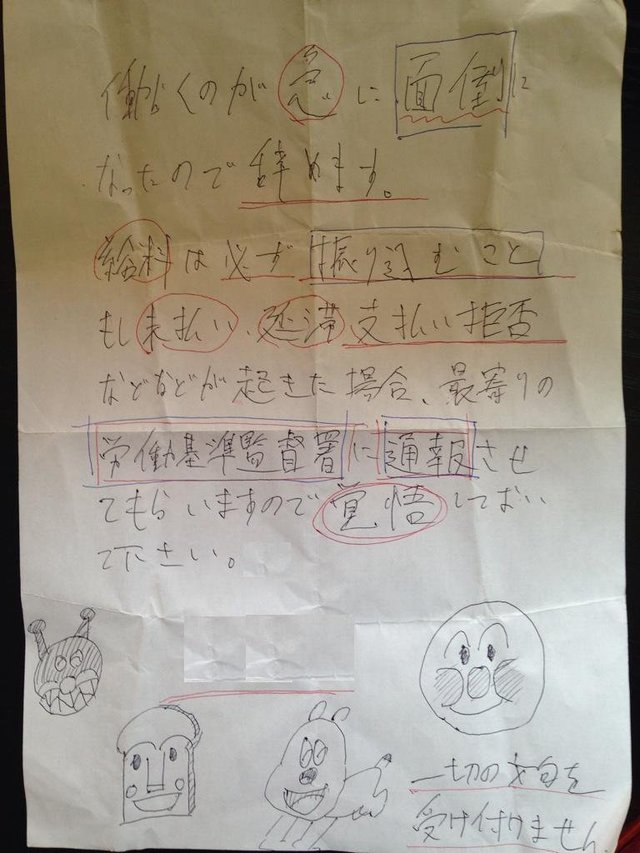 働くのが急に面倒に
なったので辞めます。
給料は必ず振り込むこと
もし未払い、延滞支払い拒否
などなどが起きた場合、最寄りの
労働基準監督署に通報させ
てもらいますので覚悟しておい
て下さい。
一切の文句を
受け付けません